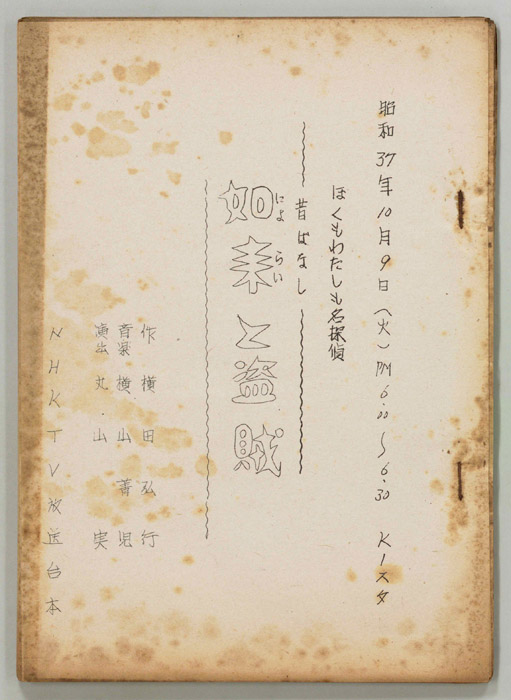 昭和37年10月9日(火)PM6.00〜6.30 K-スタ
ぼくもわたしも名探偵
昔ばなし
如来と盗賊
にょ らい
作 横田弘行
音楽 横山菁児
演出 丸山 実
NHKTV放送台本